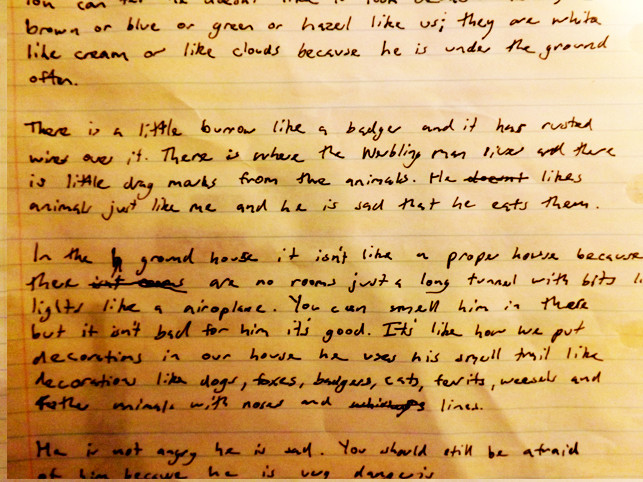 brown or blue or green or hazel like us; they are white
like cream or like clouds because he is under the ground
often.
There is a little burrow like a badger and it has rusted
wires over it. There is where the Warbling man lives and there
is little drag marks from the animals. He doesnt likes
animals just like me and he is sad that he eats them.
In the ground house it isn't like a proper house because
there isn't rooms are no rooms just a long tunnel with bits
lights like a airoplane. You can smell him in there
but it isn't bad for him it's good. It's like how we put
decorations in our house he uses his smell trail like
decorations like dogs, foxes, badgers, cats, ferits, weesels and
other animals with noses and lines.
He is not angry he is sad. You should still be afraid
of him because he is very